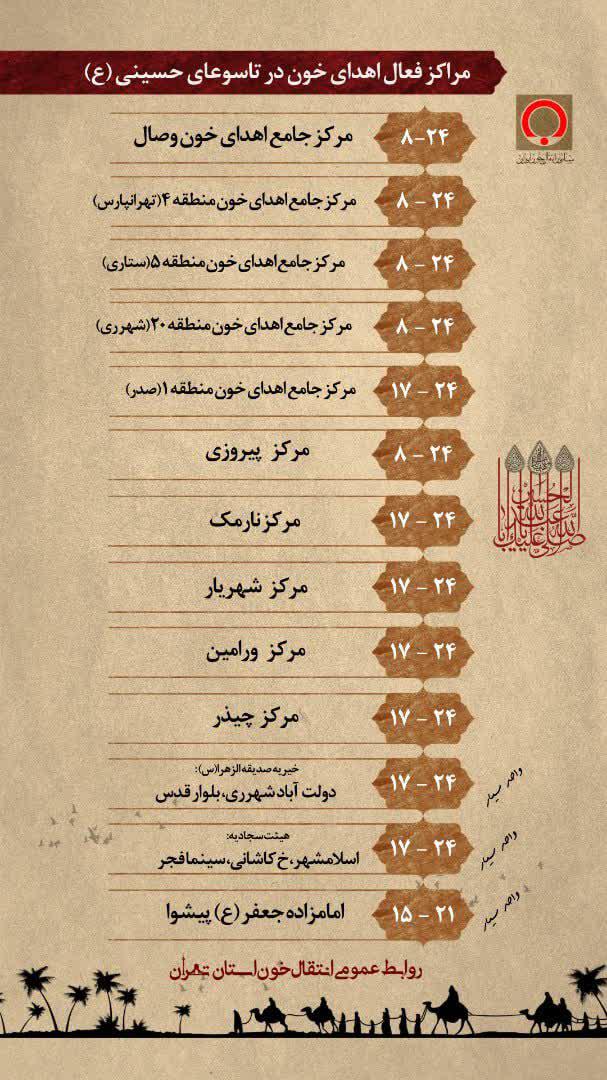 مراکز فعال اهدای خون در تاسوعای حسینی (ع)
۸-۲۴ مرکز جامع اهدای خون وصال
۸ - ۲۴ مرکز جامع اهدای خون منطقه ۴(تهرانپارس)
۸ - ۲۴ مرکز جامع اهدای خون منطقه ۵(ستاری)
۸ - ۲۴ مرکز جامع اهدای خون منطقه ۲۰(شهرری)
۱۷ - ۲۴ مرکز جامع اهدای خون منطقه ۱(صدر)
۸ - ۲۴ مرکز پیروزی
۱۷ - ۲۴ مرکز نارمک
۱۷ - ۲۴ مرکز شهریار
۱۷ - ۲۴ مرکز ورامین
۱۷ - ۲۴ مرکز چیذر
واحد سیار
۱۷ - ۲۴ خیریه صدیقه الزهرا(س):
دولت آباد شهرری، بلوار قدس
واحد سیار
۱۷ - ۲۴ هیئت سجادیه:
اسلامشهر، خ کاشانی، سینما فجر
واحد سیار
۱۵ - ۲۱ امامزاده جعفر (ع) پیشوا
روابط عمومی انتقال خون استان تهران